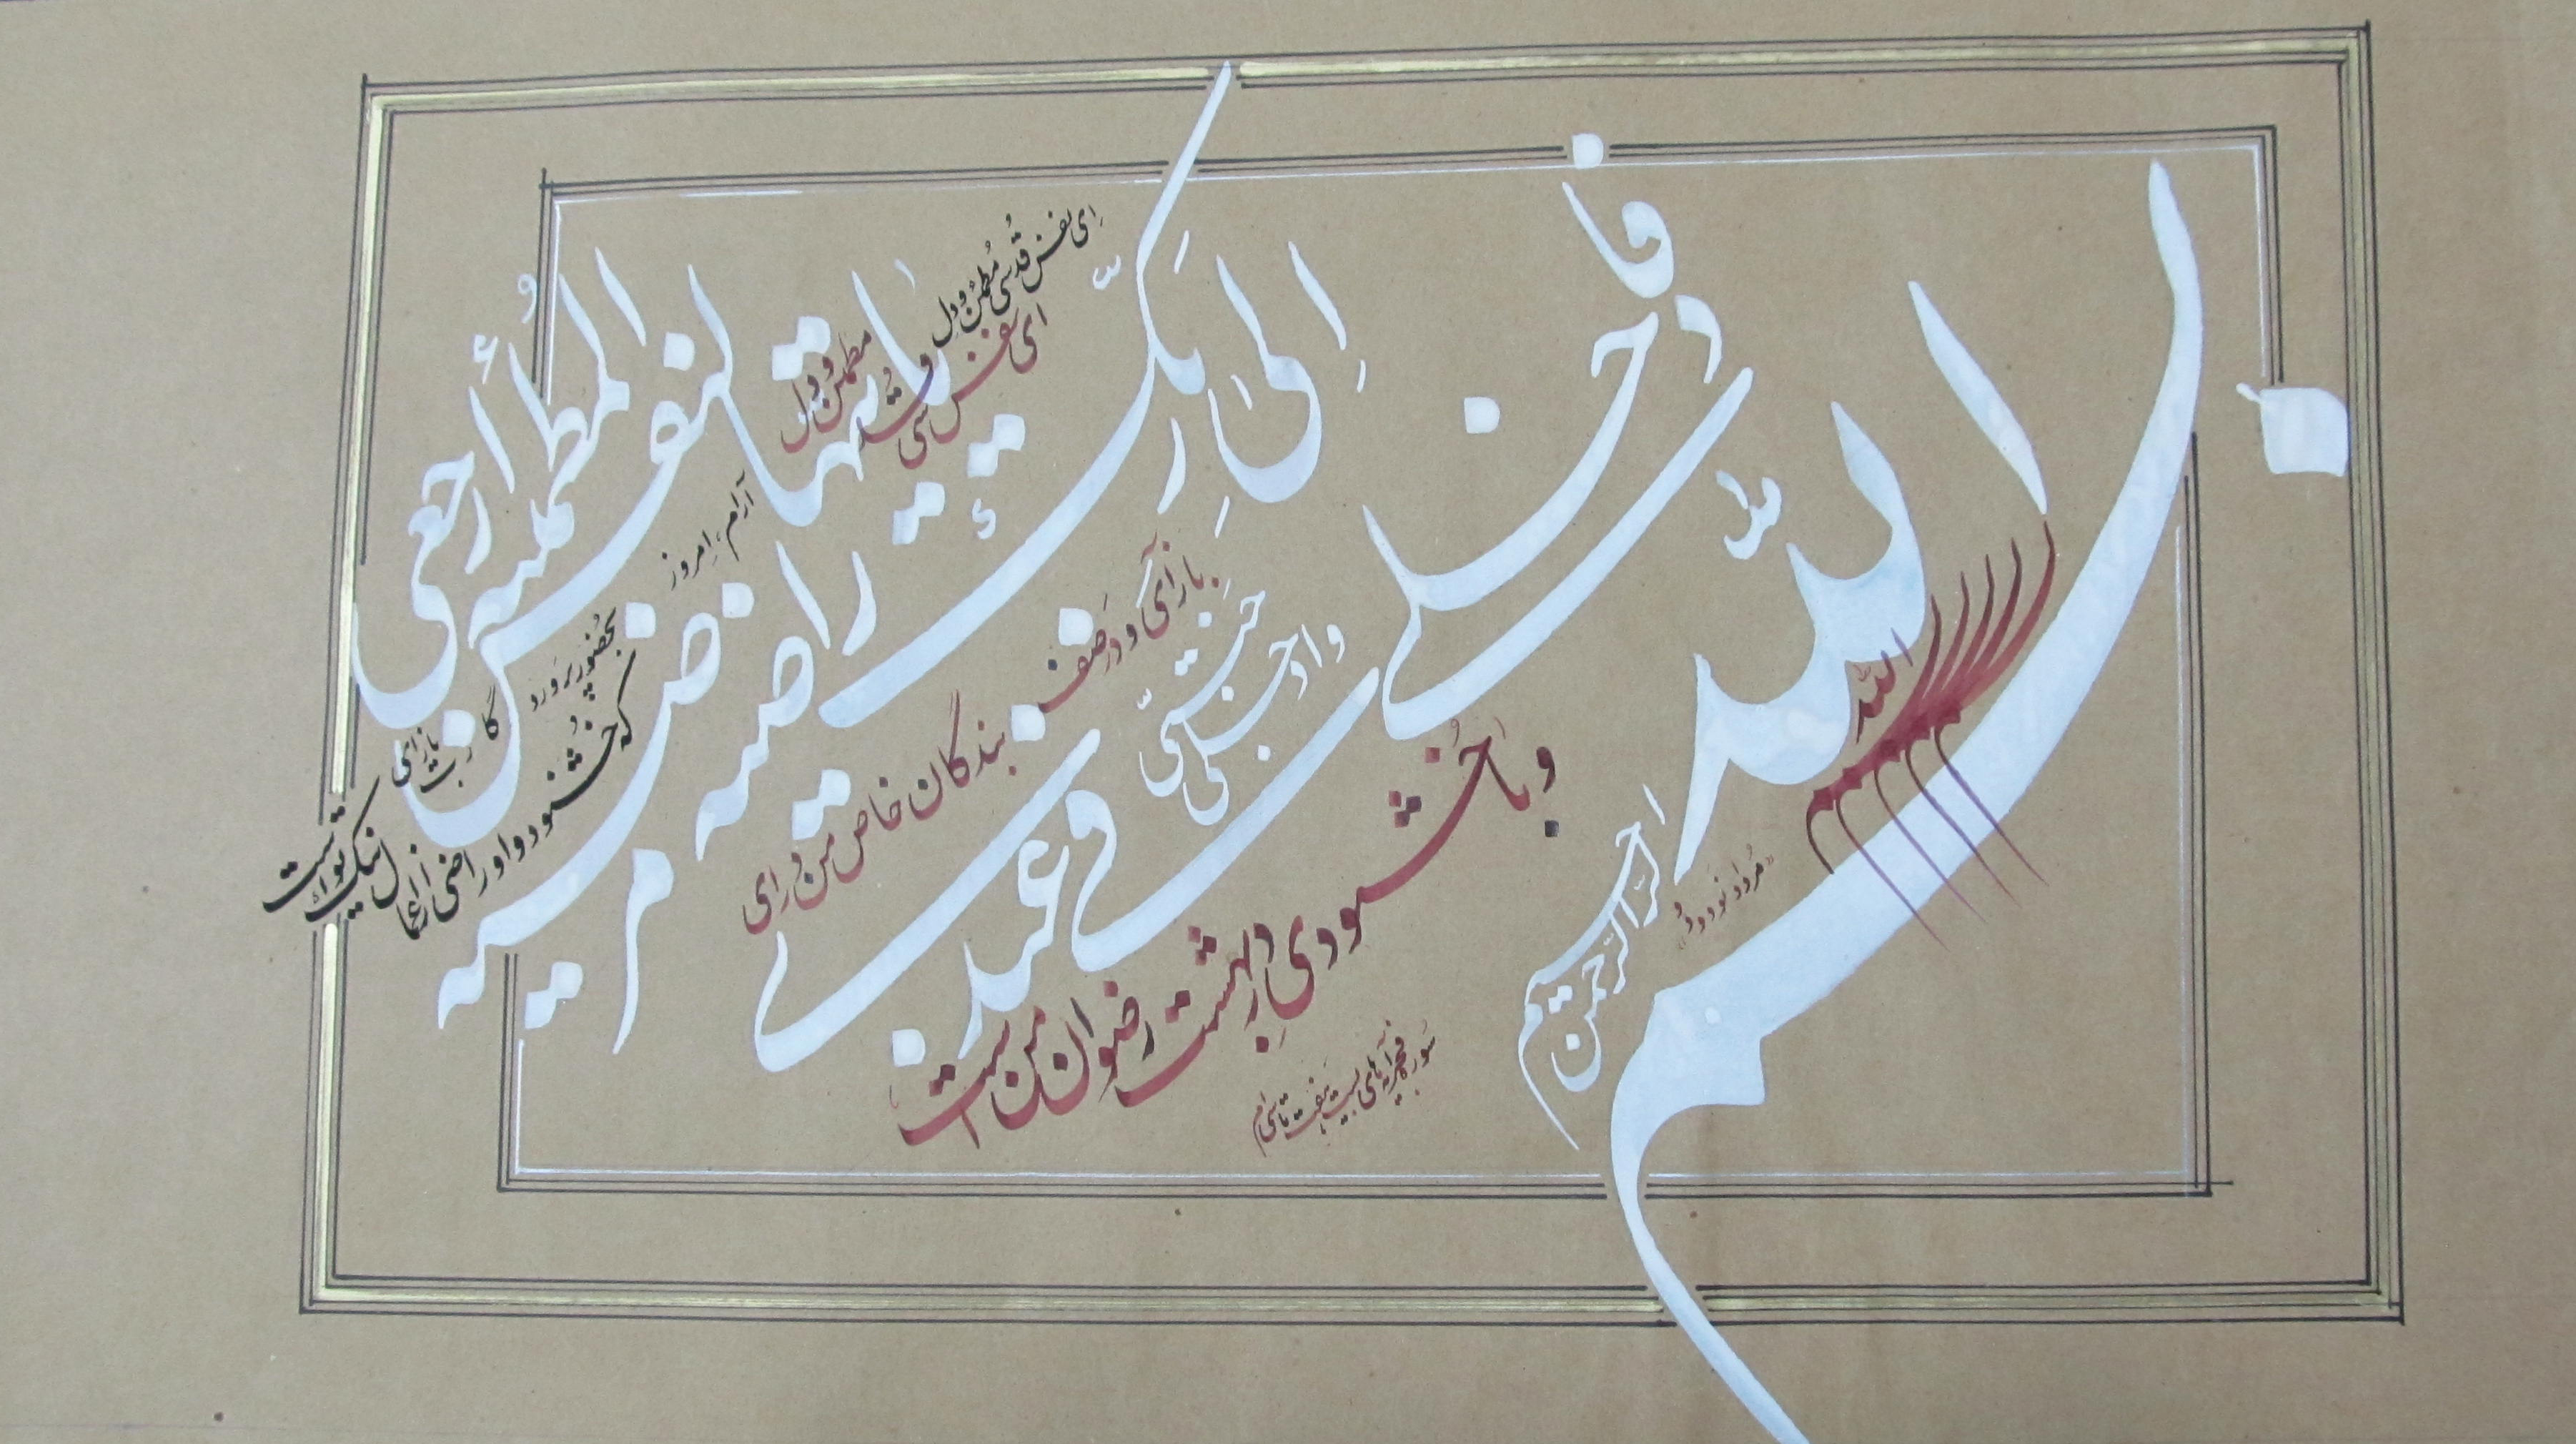 بسم الله
الرحمن الرحیم
یا أیتها النفس المطمئنة
أرجعی
إِلی رَبِّکَ
راضیة
مرضیة
فادخلی
فی عبدی
وادخلی
جَنَّتی
اِی نفس قُدسی مُطمئن و دل
ای نفس قُدسی
مطمئن و دل
آرام، اِمروز
بحُضُور پَروَرد
گارت بازآی
که خُشنود و او راضی از اعما
ل نیک تو است
بازآی و در صف
بندگان خاص من دُرای
و با خُشنودی در بهشت رضوان من است
سوره فجر آیه های بیست و هفت تا سی ام
الله